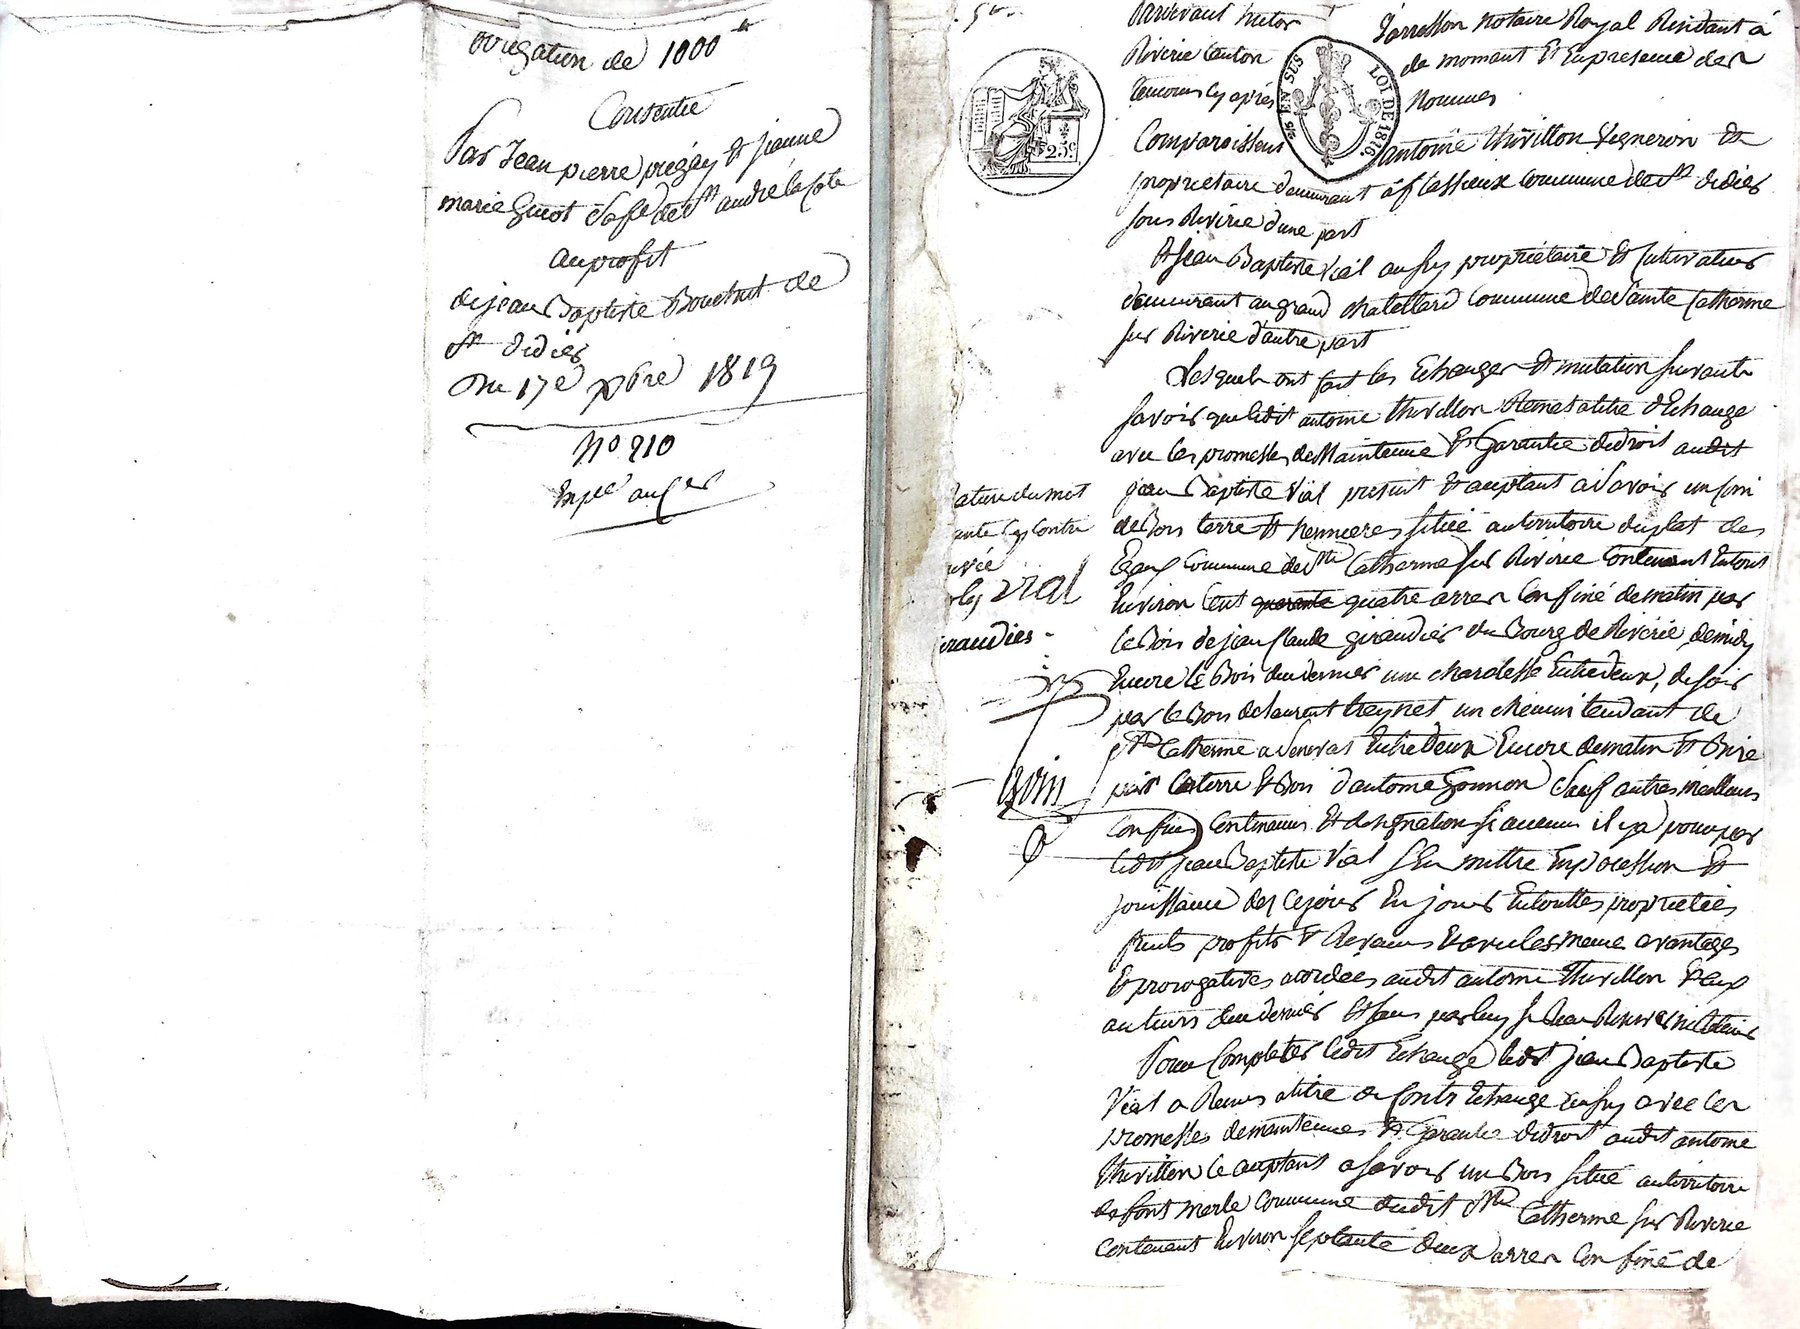 obligation de 1000 #
Consentie
Par Jean pierre et jeanne
marie Guiot de St andré la Cote
au profit
de jean Baptiste Bouchut de
St didier
Du 17e xbre 1819
No 210
Expee aux
Pardevant Tarresson notaire Royal Residant à
Riverie canton de mornant Et En presence des
temoins cy après Nommés
EN SUS LOI DE 1816
25c
Comparoissent antoine thivillon Vigneron et
proprietaire demeurant à flassieux commune de St didier
sous Riverie d'une part
Et Jean Baptiste Vial aussy propriétaire Et Cultivateur
demeurant au grand chatellard Commune de Sainte Catherine
sur Riverie d'autre part
Lesquels ont fait les Echanges Et mutation suivants
savoir que ledit antoine thivillon Remet a titre d'Echange
avec les promesses de Maintenue Et Garantie de droit audit
jean Baptiste Vial present Et acceptant a savoir un
de Bois terre Et situé au territoire du plat des
Commune de Ste Catherine sur Riverie Contenant En tout
Environ Cent quarante quatre arres Confiné de matin par
le Bois de jean Claude giraudier du Bourg de Riverie, de midy
Encore le Bois du dernier une Entredeux, de soir
par le Bois de laurent un chemin tendant de
Ste Catherine a Entredeux Encore de matin Et Bize
par la terre Et Bois d'antoine Gonnon Sauf autres meilleurs
Confins Contenues Et designation si aucuns il y a pour par
ledit jean Baptiste Vial S'En mettre En possession Et
jouissance des ce jour En jouir En toutte proprietée
fruits profits Et Revenus Et avec les meme avantages
Et prerogatives accordées audit antoine thivillon Et aux
auteurs du dernier Et sans par luy
ature du mot
ente cy contre
uvée
Vial
raudier
Pour Completer ledit Echange ledit jean Baptiste
Vial a Remis a titre de Contr Echange aussy avec les
promesses de maintenues Et Garantie de droit audit antoine
thivillon Ce acceptant a savoir un Bois situé au territoire
de font merle Commune dudit Ste Catherine sur Riverie
Contenant Environ septante deux arres Confiné de